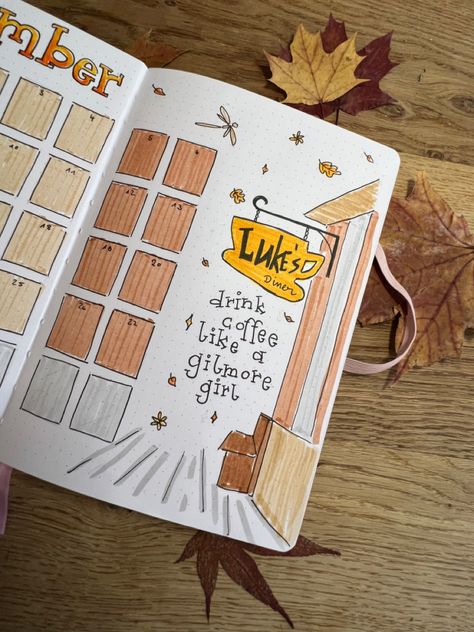 mber
3 4
10 11
18
25
5 6
12 13
19 20
26 27
LUKE'S
Diner
drink
coffee
like a
gilmore
girl